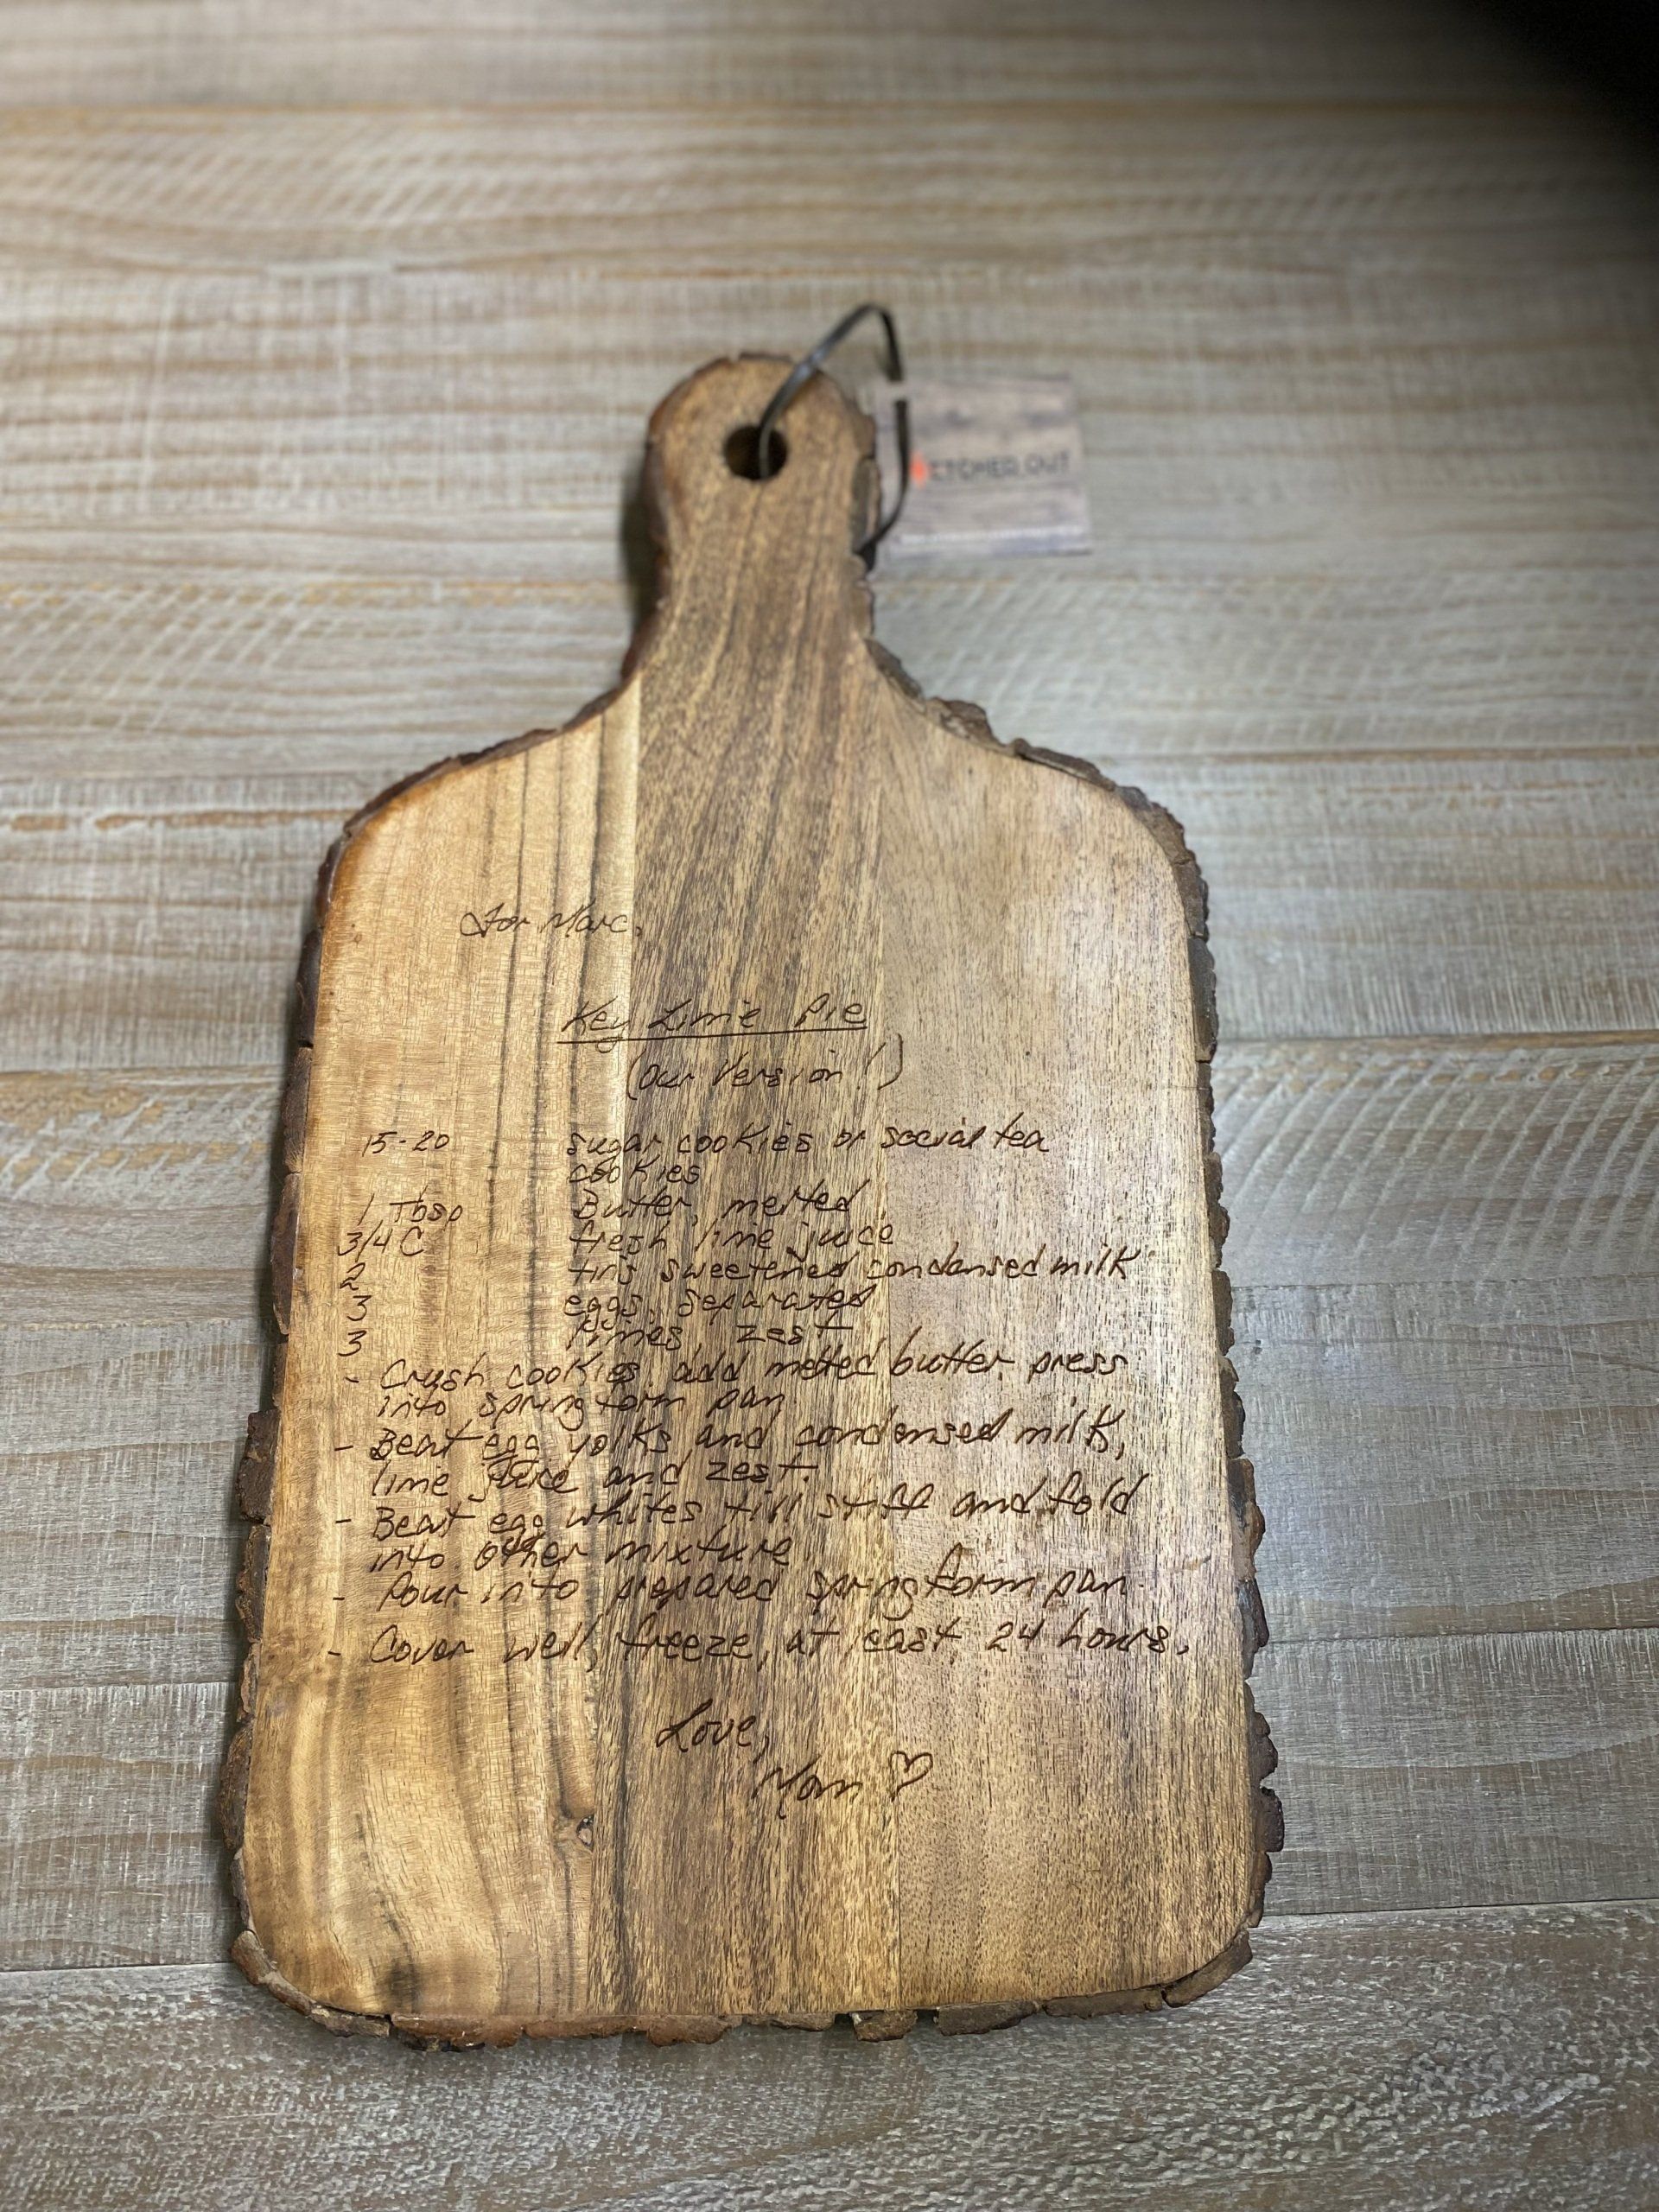 ETCHED OUT
For Marc,
Key Lime Pie
(Our Version!)
15-20 sugar cookies or social tea
cookies
1 Tbsp Butter, melted
3/4 C fresh lime juice
2 tins sweetened condensed milk
3 eggs, separated
3 limes zest
- Crush cookies, add melted butter, press
into spring form pan.
- Beat egg yolks and condensed milk,
lime juice and zest.
- Beat egg whites till stiff and fold
into other mixture
- Pour into prepared spring form pan.
- Cover well, freeze, at least 24 hours.
Love,
Mom ♡